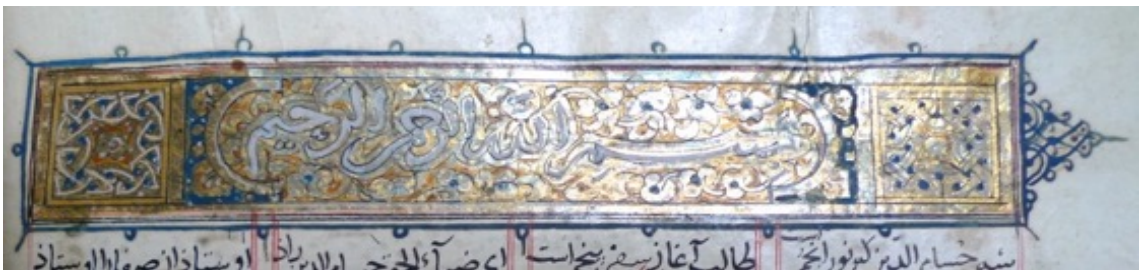 بسم الله الرحمن الرحیم
شه حسام الدین که نور انجم است طالب آغاز سفر پنجم است ای ضیاء الحق حسام الدین راد اوستادان صفا را اوستاد